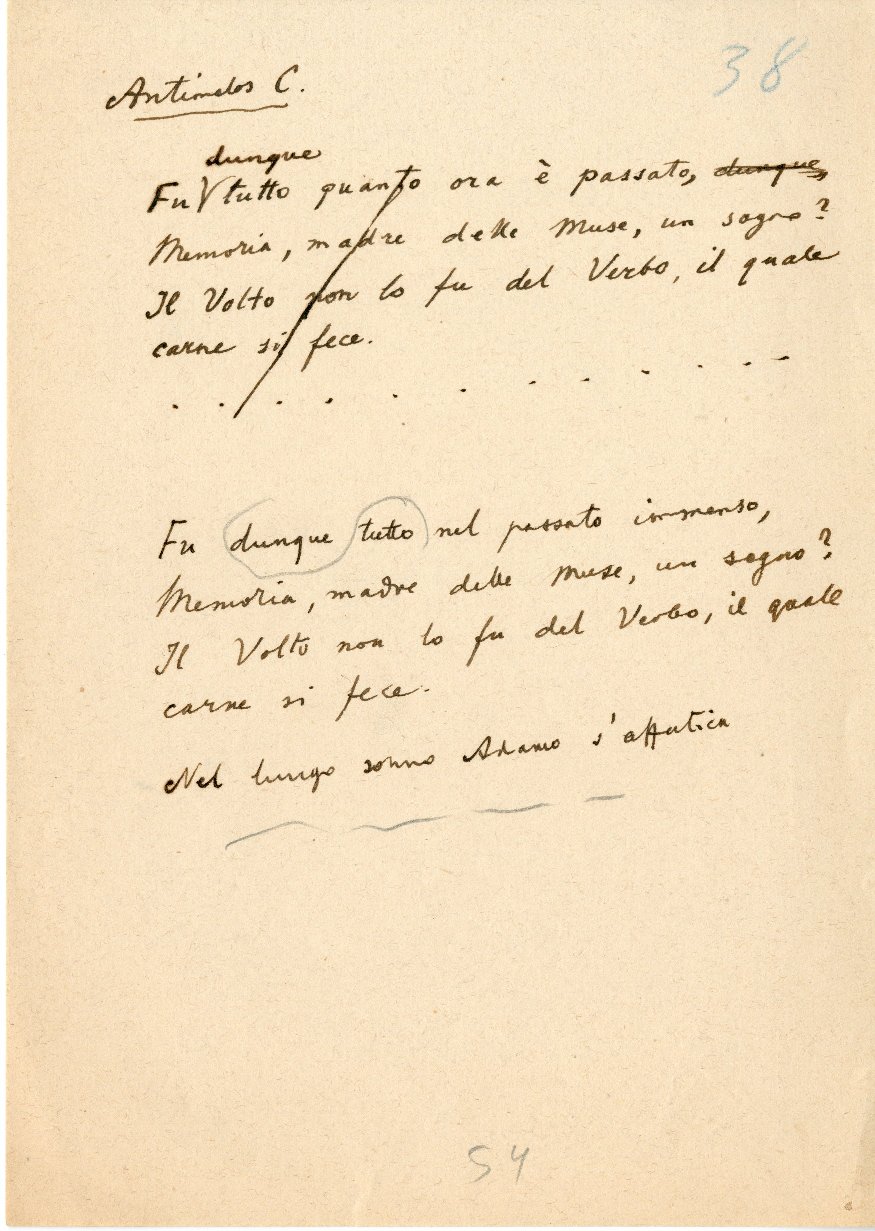 38
Antimelos C.
dunque
Fu V tutto quanto ora è passato, dunque,
Memoria, madre delle Muse, un sogno?
Il Volto non lo fu del Verbo, il quale
carne si fece.
. . . . . . . . . . . .
Fu dunque tutto nel passato immenso,
Memoria, madre delle Muse, un sogno?
Il Volto non lo fu del Verbo, il quale
carne si fece.
Nel lungo sonno Adamo s'affatica
54